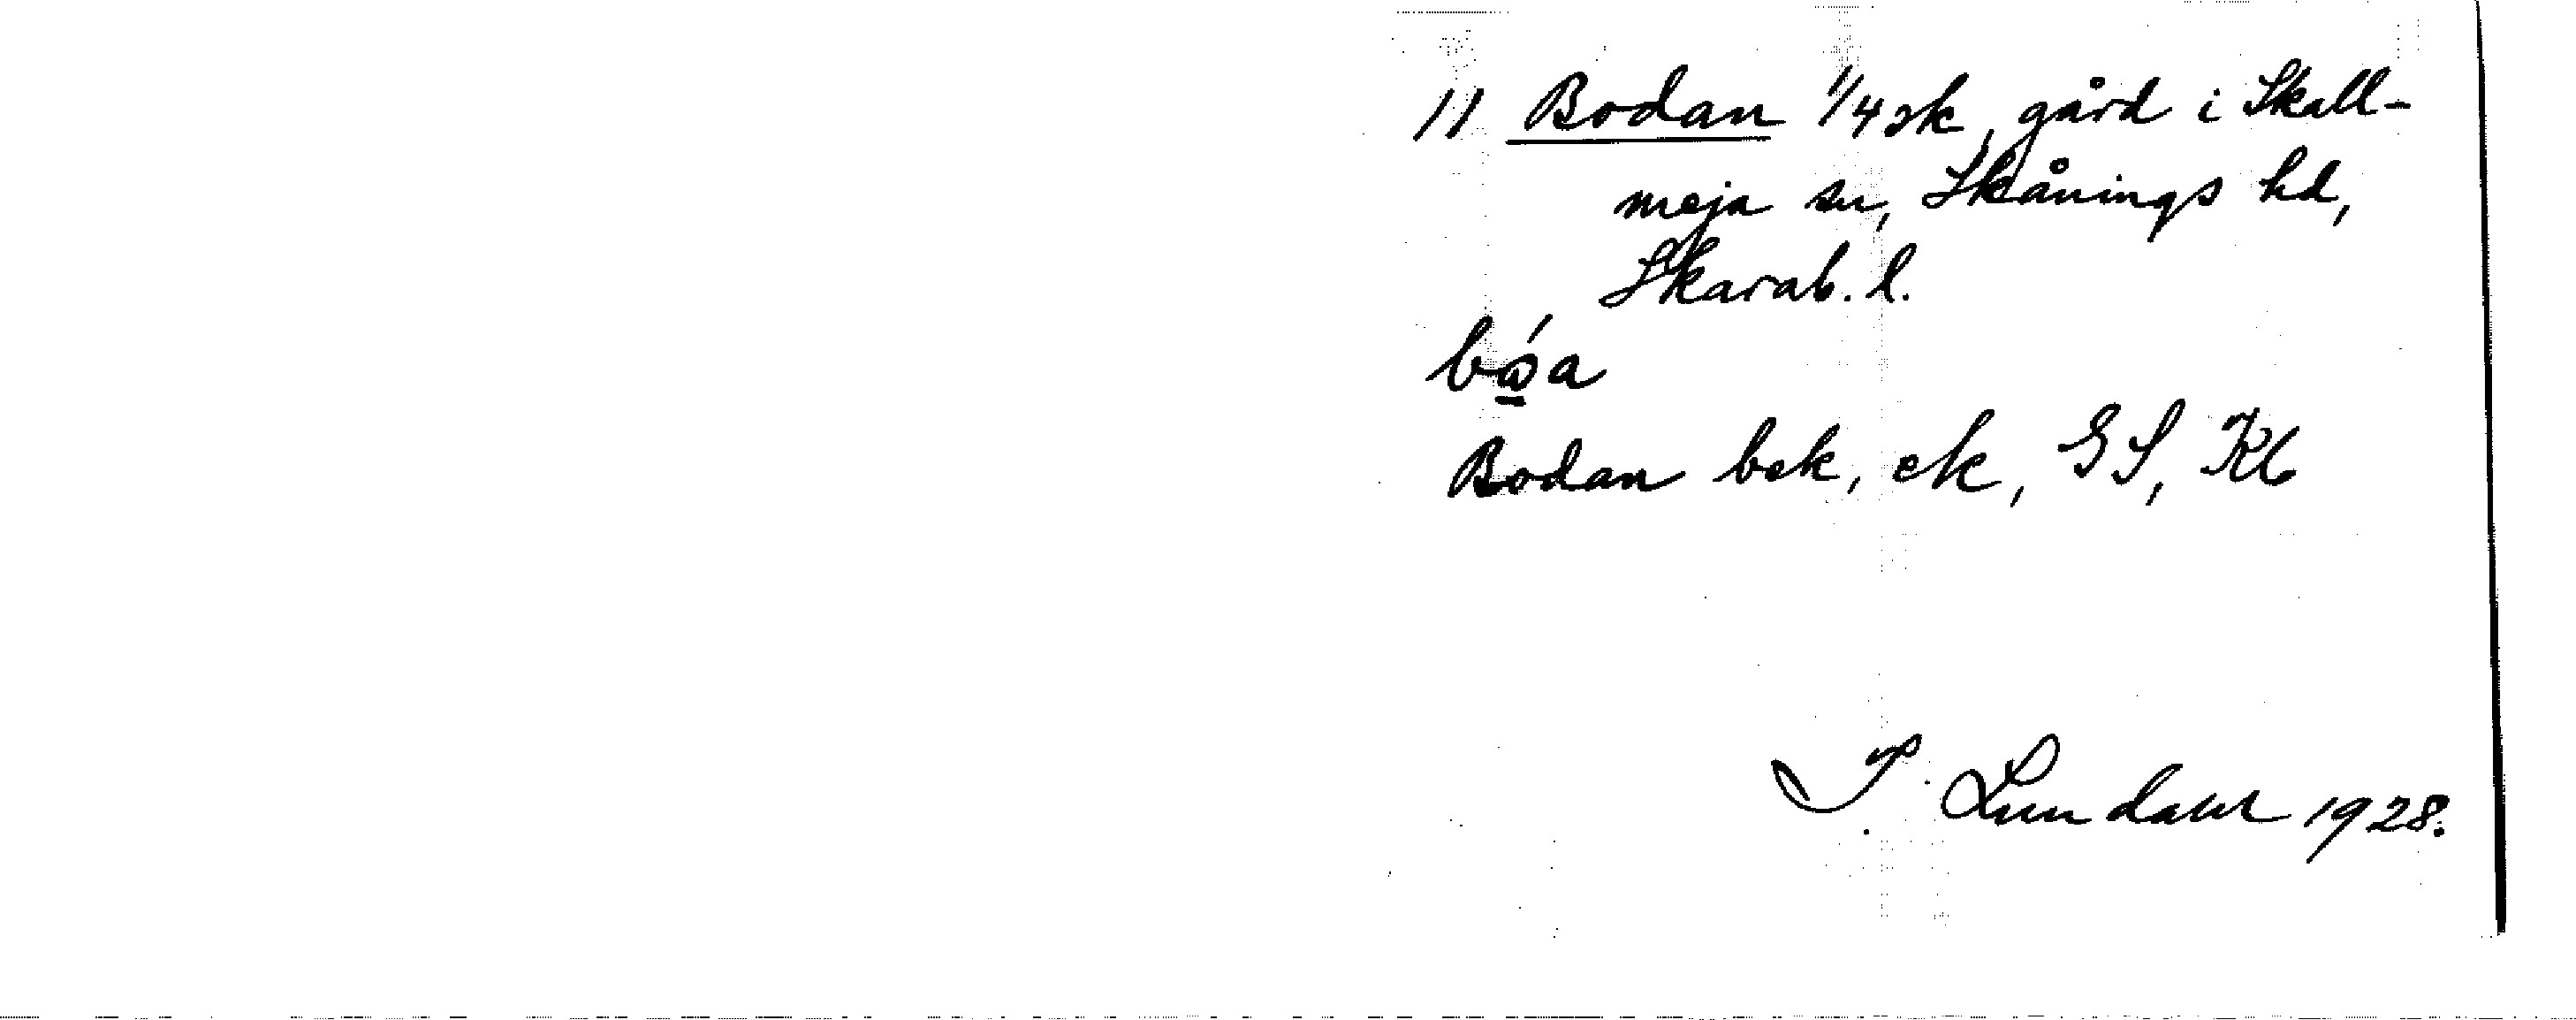 11 Bodan 1/4 sk, gård i Skall-
meja sn, Skånings hd,
Skarab. l.
bǫ́a
Bodan bek, ek, GS, Kb
I. Lundahl 1928.